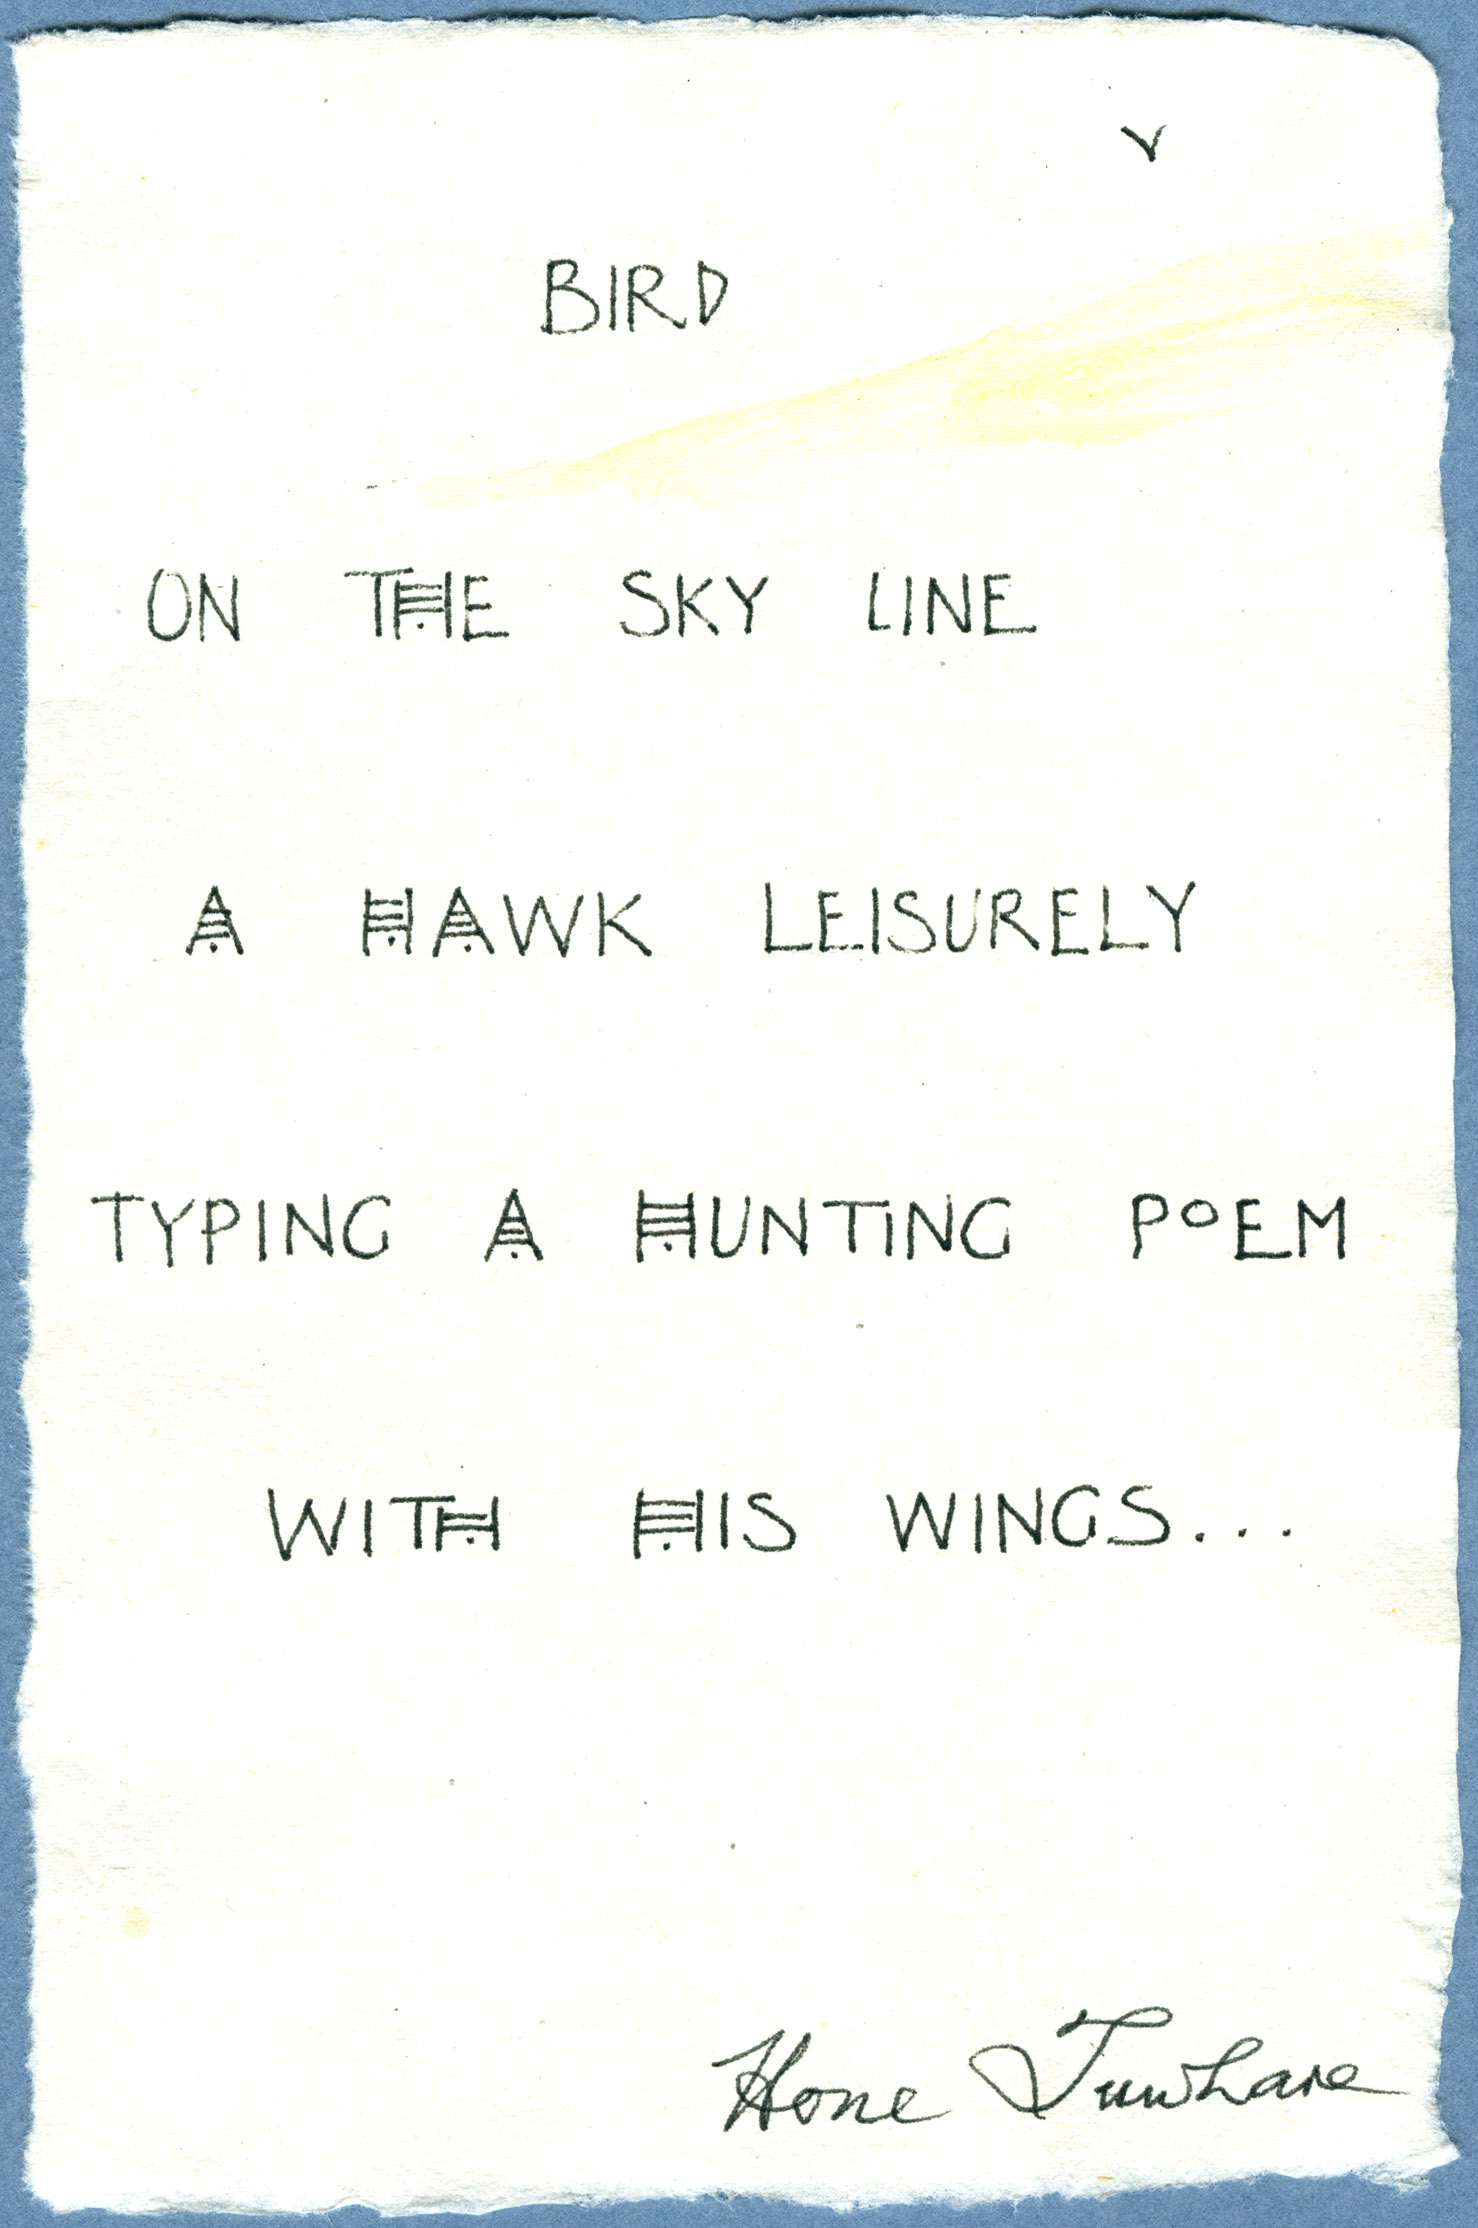 BIRD
ON THE SKY LINE
A HAWK LEISURELY
TYPING A HUNTING POEM
WITH HIS WINGS...
Hone Tuwhare